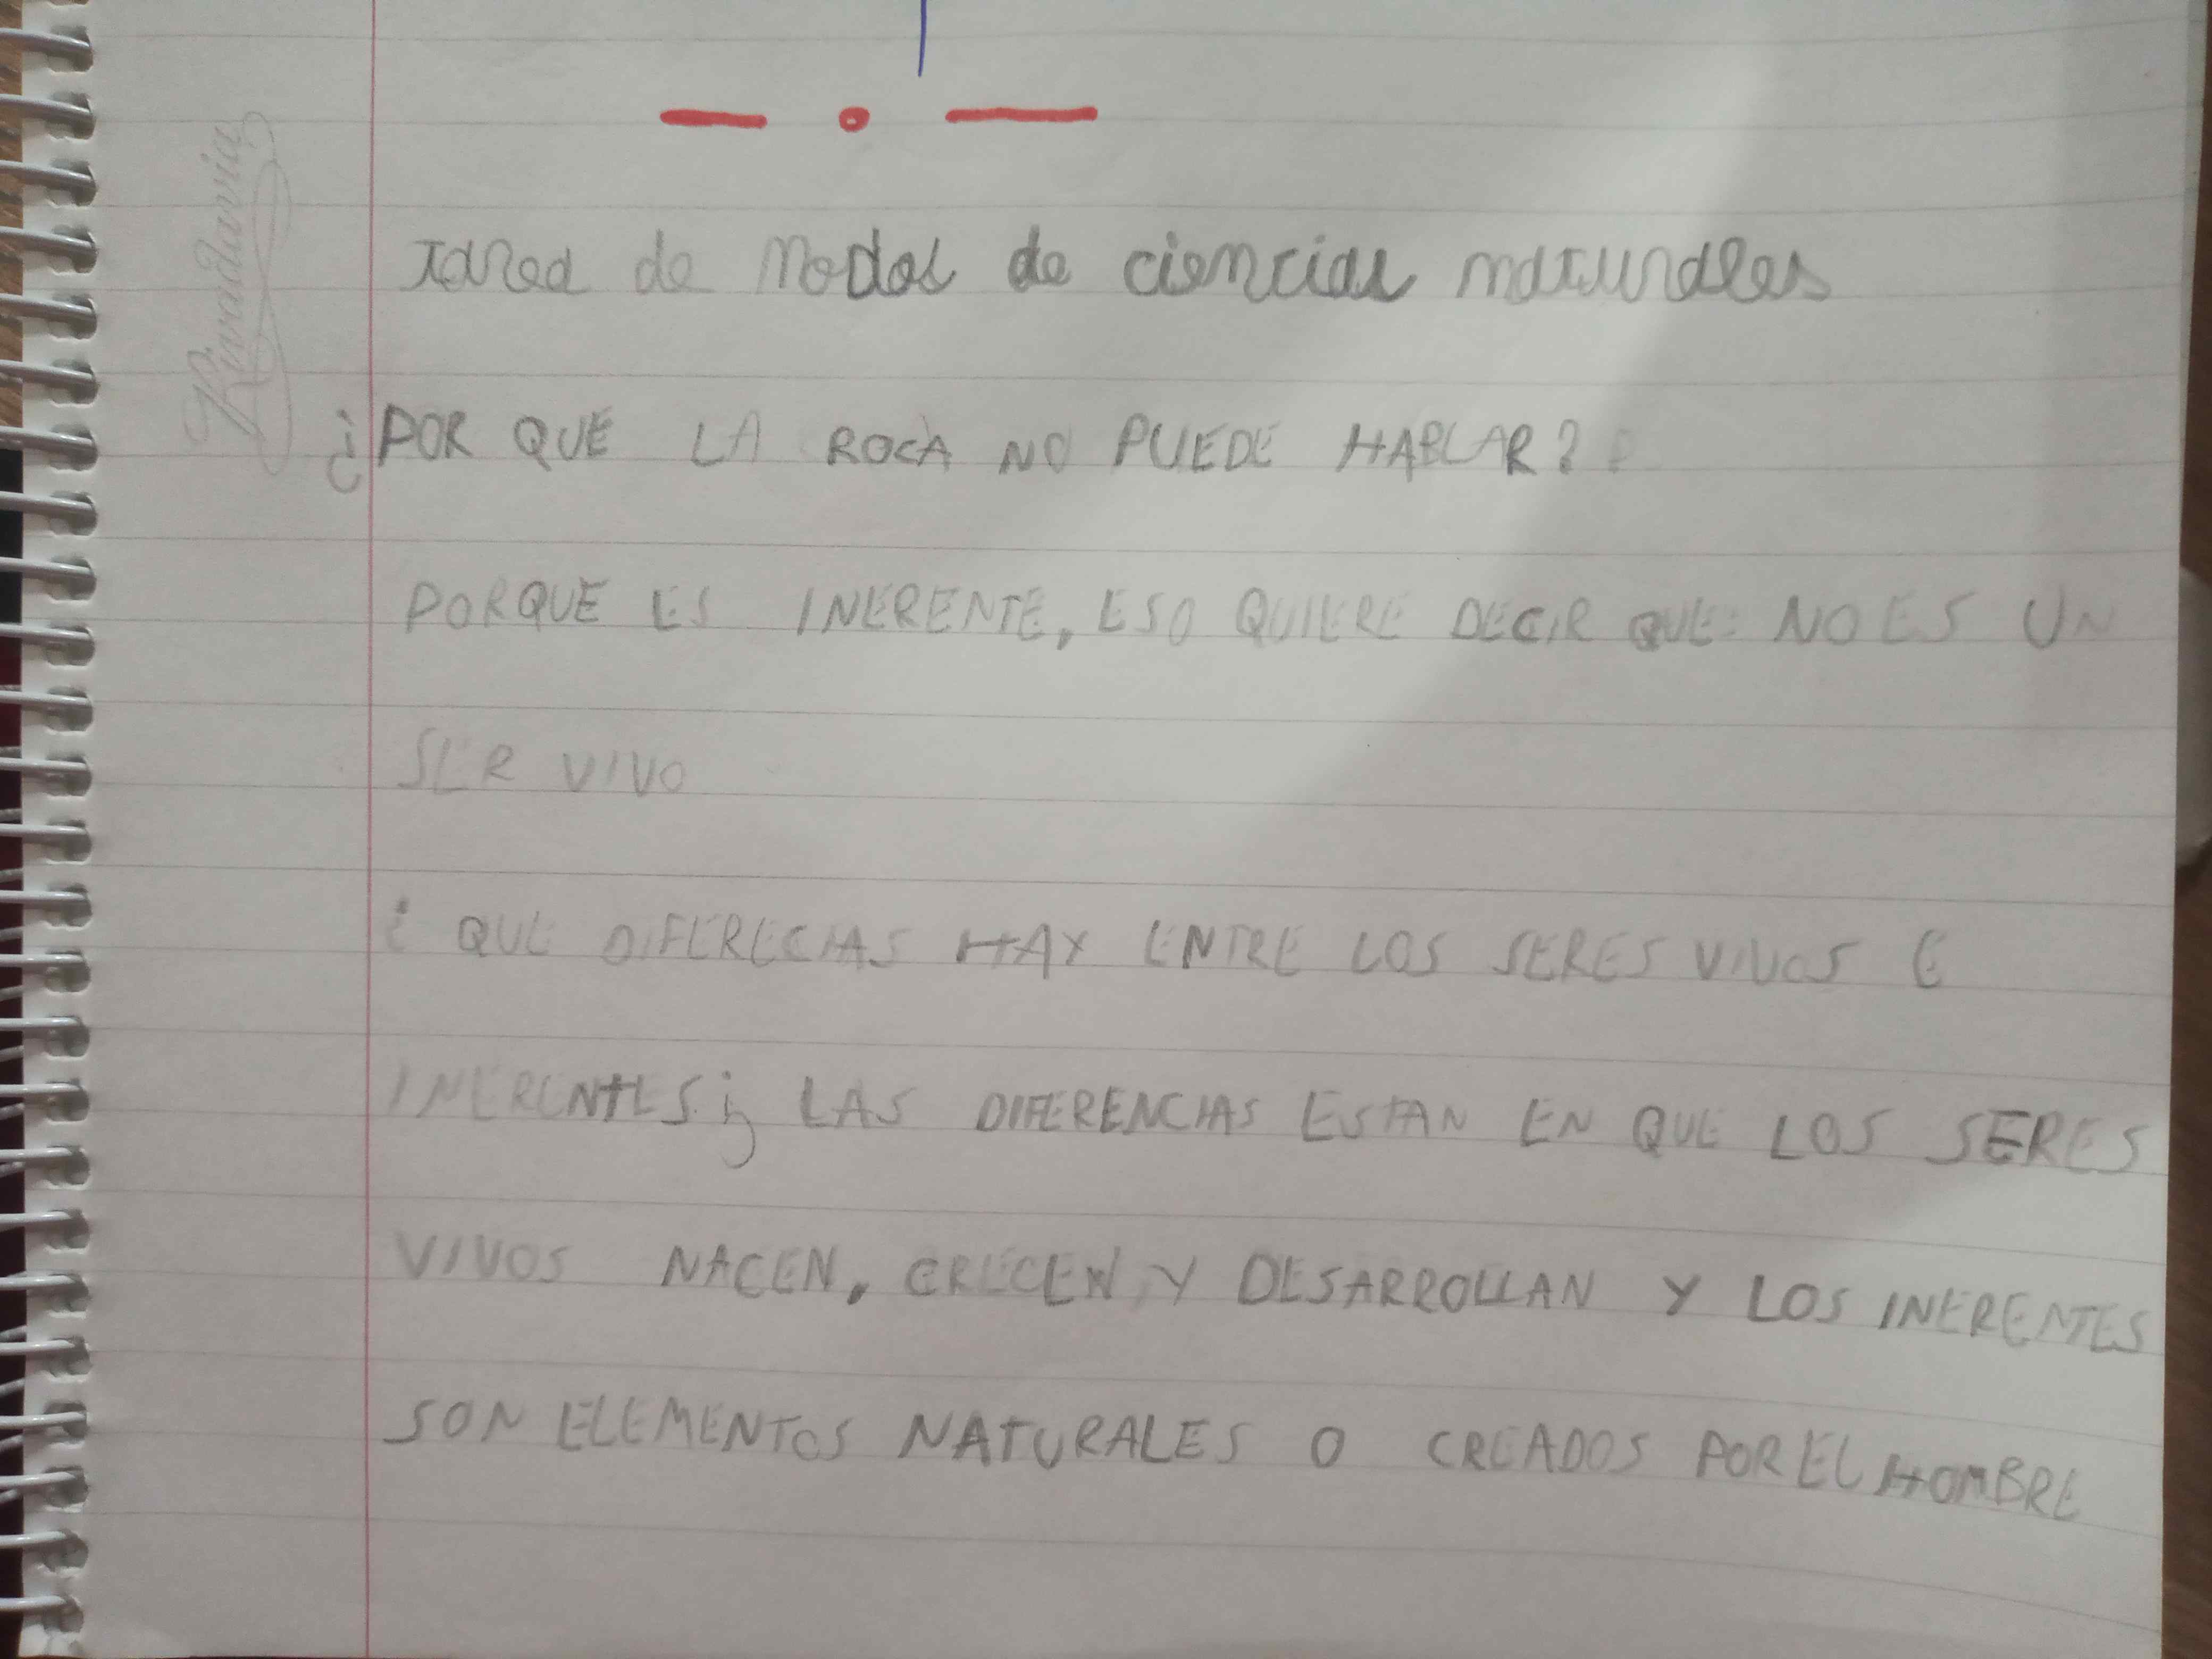 Rivadavia
Tarea de Modal de ciencias naturales
¿POR QUÉ LA ROCA NO PUEDE HABLAR?
PORQUE ES INERENTE, ESO QUIERE DECIR QUE: NO ES UN
SER VIVO
¿ QUE DIFERECIAS HAY ENTRE LOS SERES VIVOS E
INERENTES¿ LAS DIFERENCIAS ESTAN EN QUE LOS SERES
VIVOS NACEN, CRECEN, Y DESARROLLAN Y LOS INERENTES
SON ELEMENTOS NATURALES O CREADOS POR EL HOMBRE